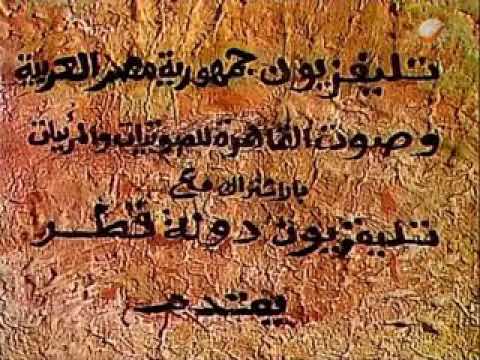 تليفزيون جمهورية مصر العربية
وصوت القاهرة للصوتيات والمرئيات
بالاشتراك مع
تليفزيون دولة قطر
يقدم